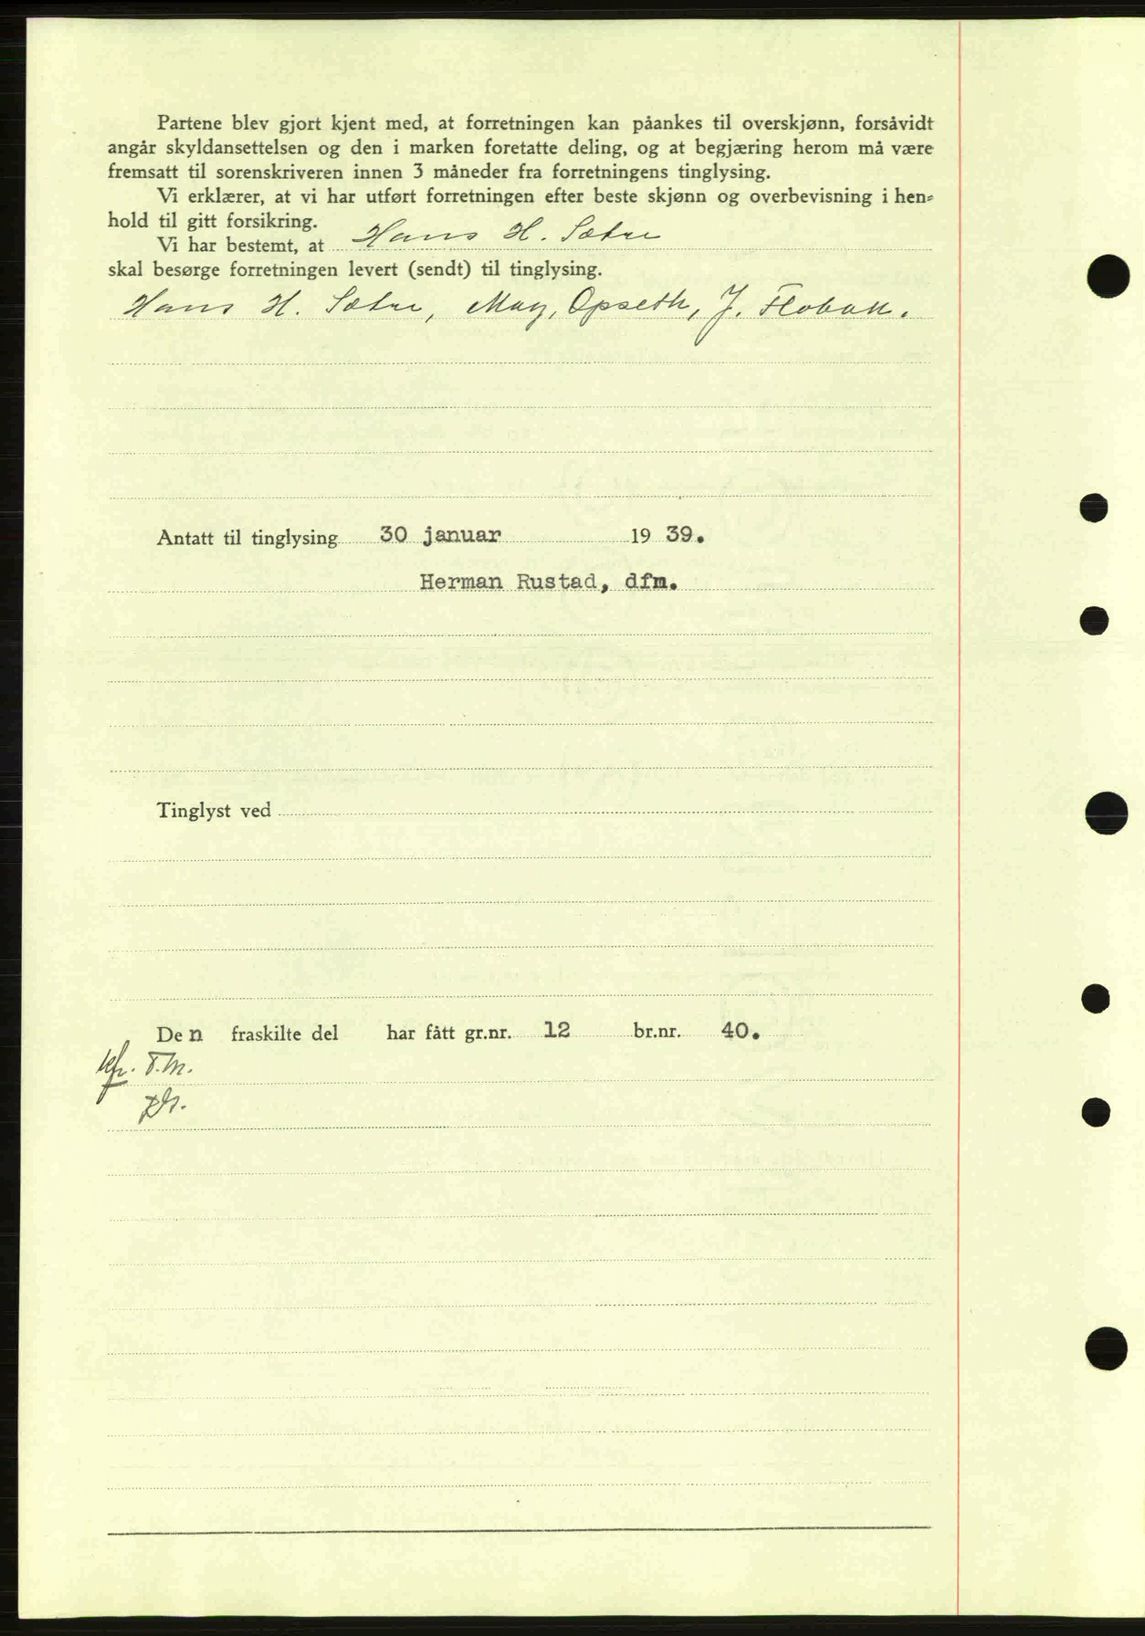 Partene blev gjort kjent med, at forretningen kan påankes til overskjønn, forsåvidt
angår skyldansettelsen og den i marken foretatte deling, og at begjæring herom må være
fremsatt til sorenskriveren innen 3 måneder fra forretningens tinglysing.
Vi erklærer, at vi har utført forretningen efter beste skjønn og overbevisning i hen-
hold til gitt forsikring.
Vi har bestemt, at Hans H. Sætre
skal besørge forretningen levert (sendt) til tinglysing.
Hans H. Sætre, Mag, Opseth, J. Flobak.
Antatt til tinglysing 30 januar 19 39.
Herman Rustad, dfm.
Tinglyst ved
Den fraskilte del har fått gr.nr. 12 br.nr. 40.